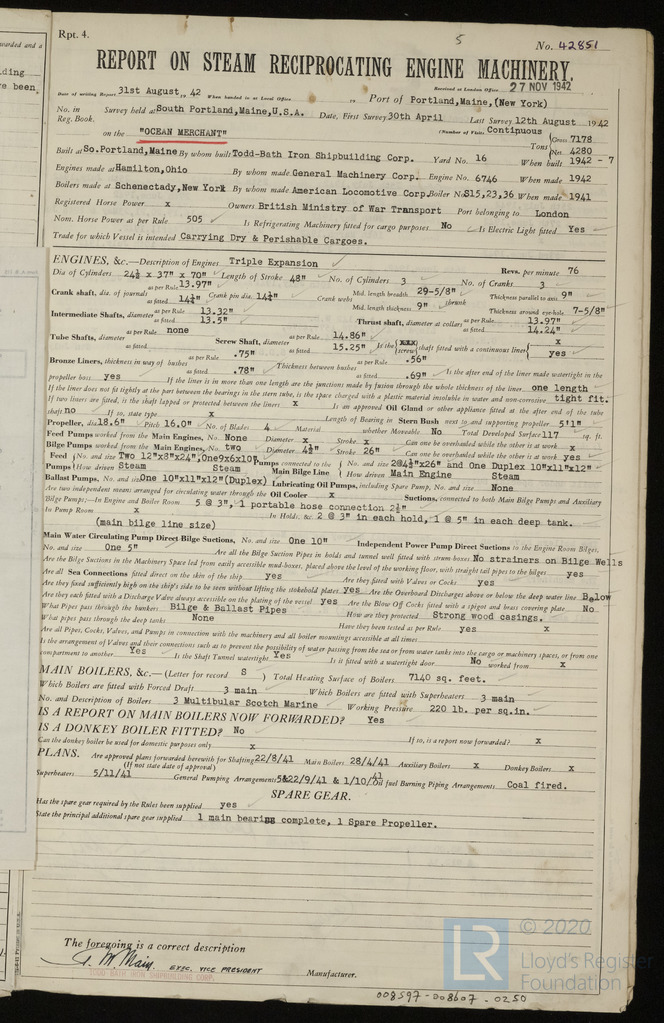 Rpt. 4.
5
No. 42851
REPORT ON STEAM RECIPROCATING ENGINE MACHINERY.
Received at London Office 27 NOV 1942
Date of writing Report 31st August, 19 42 When handed in at Local Office 19 Port of Portland, Maine, (New York)
No. in Reg. Book. Survey held at South Portland, Maine, U.S.A. Date, First Survey 30th April Last Survey 12th August 1942
(Number of Visits Continuous
on the "OCEAN MERCHANT" Tons { Gross 7178
Net 4280
Built at So. Portland, Maine By whom built Todd-Bath Iron Shipbuilding Corp. Yard No. 16 When built 1942 - 7
Engines made at Hamilton, Ohio By whom made General Machinery Corp. Engine No. 6746 When made 1942
Boilers made at Schenectady, New York By whom made American Locomotive Corp. Boiler No. S15,23,36 When made 1941
Registered Horse Power x Owners British Ministry of War Transport Port belonging to London
Nom. Horse Power as per Rule 505 Is Refrigerating Machinery fitted for cargo purposes No Is Electric Light fitted Yes
Trade for which Vessel is intended Carrying Dry & Perishable Cargoes.
ENGINES, &c.—Description of Engines Triple Expansion Revs. per minute 76
Dia of Cylinders 24½ x 37" x 70" Length of Stroke 48" No. of Cylinders 3 No. of Cranks 3
Crank shaft, dia. of journals as per Rule 13.97" as fitted 14¼" Crank pin dia. 14¼" Crank webs Mid. length breadth 29-5/8" Mid. length thickness 9" shrunk Thickness parallel to axis 9" Thickness around eye-hole 7-5/8"
Intermediate Shafts, diameter as per Rule 13.32" as fitted 13.5" Thrust shaft, diameter at collars as per Rule 13.97" as fitted 14.24"
Tube Shafts, diameter as per Rule none as fitted Screw Shaft, diameter as per Rule 14.86" as fitted 15.25" Is the { xxxx screw } shaft fitted with a continuous liner { x yes
Bronze Liners, thickness in way of bushes as per Rule .75" as fitted .78" Thickness between bushes as per Rule .56" as fitted .69" Is the after end of the liner made watertight in the
propeller boss yes If the liner is in more than one length are the junctions made by fusion through the whole thickness of the liner one length
If the liner does not fit tightly at the part between the bearings in the stern tube, is the space charged with a plastic material insoluble in water and non-corrosive tight fit.
If two liners are fitted, is the shaft lapped or protected between the liners x Is an approved Oil Gland or other appliance fitted at the after end of the tube
shaft no If so, state type x Length of Bearing in Stern Bush next to and supporting propeller 5'1"
Propeller, dia 18.6" Pitch 16.0" No. of Blades 4 Material whether Moveable No Total Developed Surface 117 sq. ft.
Feed Pumps worked from the Main Engines, No. None Diameter x Stroke x Can one be overhauled while the other is at work x
Bilge Pumps worked from the Main Engines, No. two Diameter 4½" Stroke 26" Can one be overhauled while the other is at work yes
Feed Pumps { No. and size Two 12"x8"x24", One 9x6x10" How driven Steam Steam Pumps connected to the Main Bilge Line { No. and size 2@4½"x26" and One Duplex 10"x11"x12" How driven Main Engine Steam
Ballast Pumps, No. and size One 10"x11"x12"(Duplex) Lubricating Oil Pumps, including Spare Pump, No. and size None
Are two independent means arranged for circulating water through the Oil Cooler x Suctions, connected to both Main Bilge Pumps and Auxiliary
Bilge Pumps:—In Engine and Boiler Room 5 @ 3", 1 portable hose connection 2½"
In Pump Room x In Holds, &c. 2 @ 3" in each hold, 1 @ 5" in each deep tank.
(main bilge line size)
Main Water Circulating Pump Direct Bilge Suctions, No. and size One 10" Independent Power Pump Direct Suctions to the Engine Room Bilges,
No. and size One 5" Are all the Bilge Suction Pipes in holds and tunnel well fitted with strum boxes No strainers on Bilge Wells
Are the Bilge Suctions in the Machinery Space led from easily accessible mud-boxes, placed above the level of the working floor, with straight tail pipes to the bilges yes
Are all Sea Connections fitted direct on the skin of the ship yes Are they fitted with Valves or Cocks yes
Are they fixed sufficiently high on the ship's side to be seen without lifting the stokehold plates yes Are the Overboard Discharges above or below the deep water line Below
Are they each fitted with a Discharge Valve always accessible on the plating of the vessel yes Are the Blow Off Cocks fitted with a spigot and brass covering plate No
What Pipes pass through the bunkers Bilge & Ballast Pipes How are they protected Strong wood casings.
What pipes pass through the deep tanks None Have they been tested as per Rule yes x
Are all Pipes, Cocks, Valves, and Pumps in connection with the machinery and all boiler mountings accessible at all times
Is the arrangement of Valves and their connections such as to prevent the possibility of water passing from the sea or from water tanks into the cargo or machinery spaces, or from one
compartment to another Yes Is the Shaft Tunnel watertight Yes Is it fitted with a watertight door No worked from x
MAIN BOILERS, &c.—(Letter for record S ) Total Heating Surface of Boilers 7140 sq. feet.
Which Boilers are fitted with Forced Draft 3 main Which Boilers are fitted with Superheaters 3 main
No. and Description of Boilers 3 Multibular Scotch Marine Working Pressure 220 lb. per sq.in.
IS A REPORT ON MAIN BOILERS NOW FORWARDED? Yes
IS A DONKEY BOILER FITTED? No If so, is a report now forwarded? x
Can the donkey boiler be used for domestic purposes only x
PLANS. Are approved plans forwarded herewith for Shafting 22/8/41 Main Boilers 28/4/41 Auxiliary Boilers x Donkey Boilers x
(If not state date of approval)
Superheaters 5/11/41 General Pumping Arrangements 5&22/9/41 & 1/10/41 Oil fuel Burning Piping Arrangements Coal fired.
SPARE GEAR.
Has the spare gear required by the Rules been supplied yes
State the principal additional spare gear supplied 1 main bearing complete, 1 Spare Propeller.
The foregoing is a correct description
EXEC. VICE PRESIDENT Manufacturer.
TODD-BATH IRON SHIPBUILDING CORP.
© 2020
LR
Lloyd's Register
Foundation
008597-008607-0250